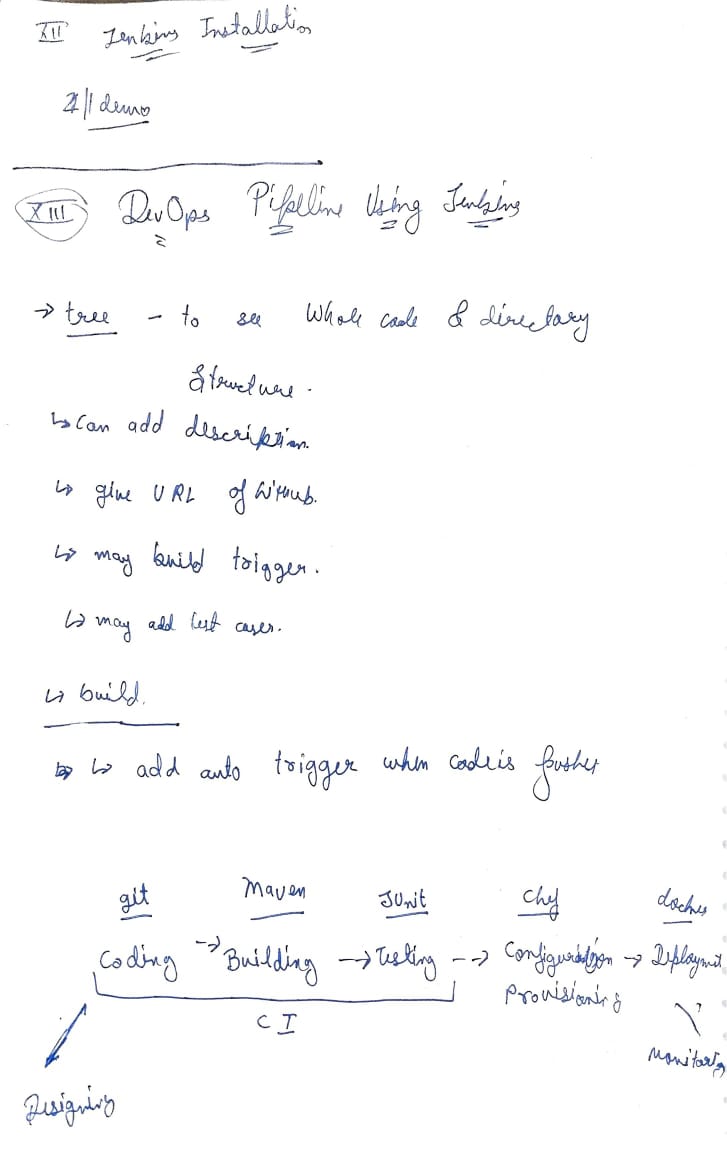 XII Jenkins Installation
// demo
XIII DevOps Pipeline Using Jenkins
→ tree - to see whole code & directory
structure.
↳ Can add description.
↳ give URL of GitHub.
↳ may build trigger.
↳ may add test cases.
↳ build.
↳ add auto trigger when code is pushed
git Maven JUnit Chef docker
Coding → Building → Testing --> Configuration → Deployment
Provisioning
CI
Monitoring
Designing